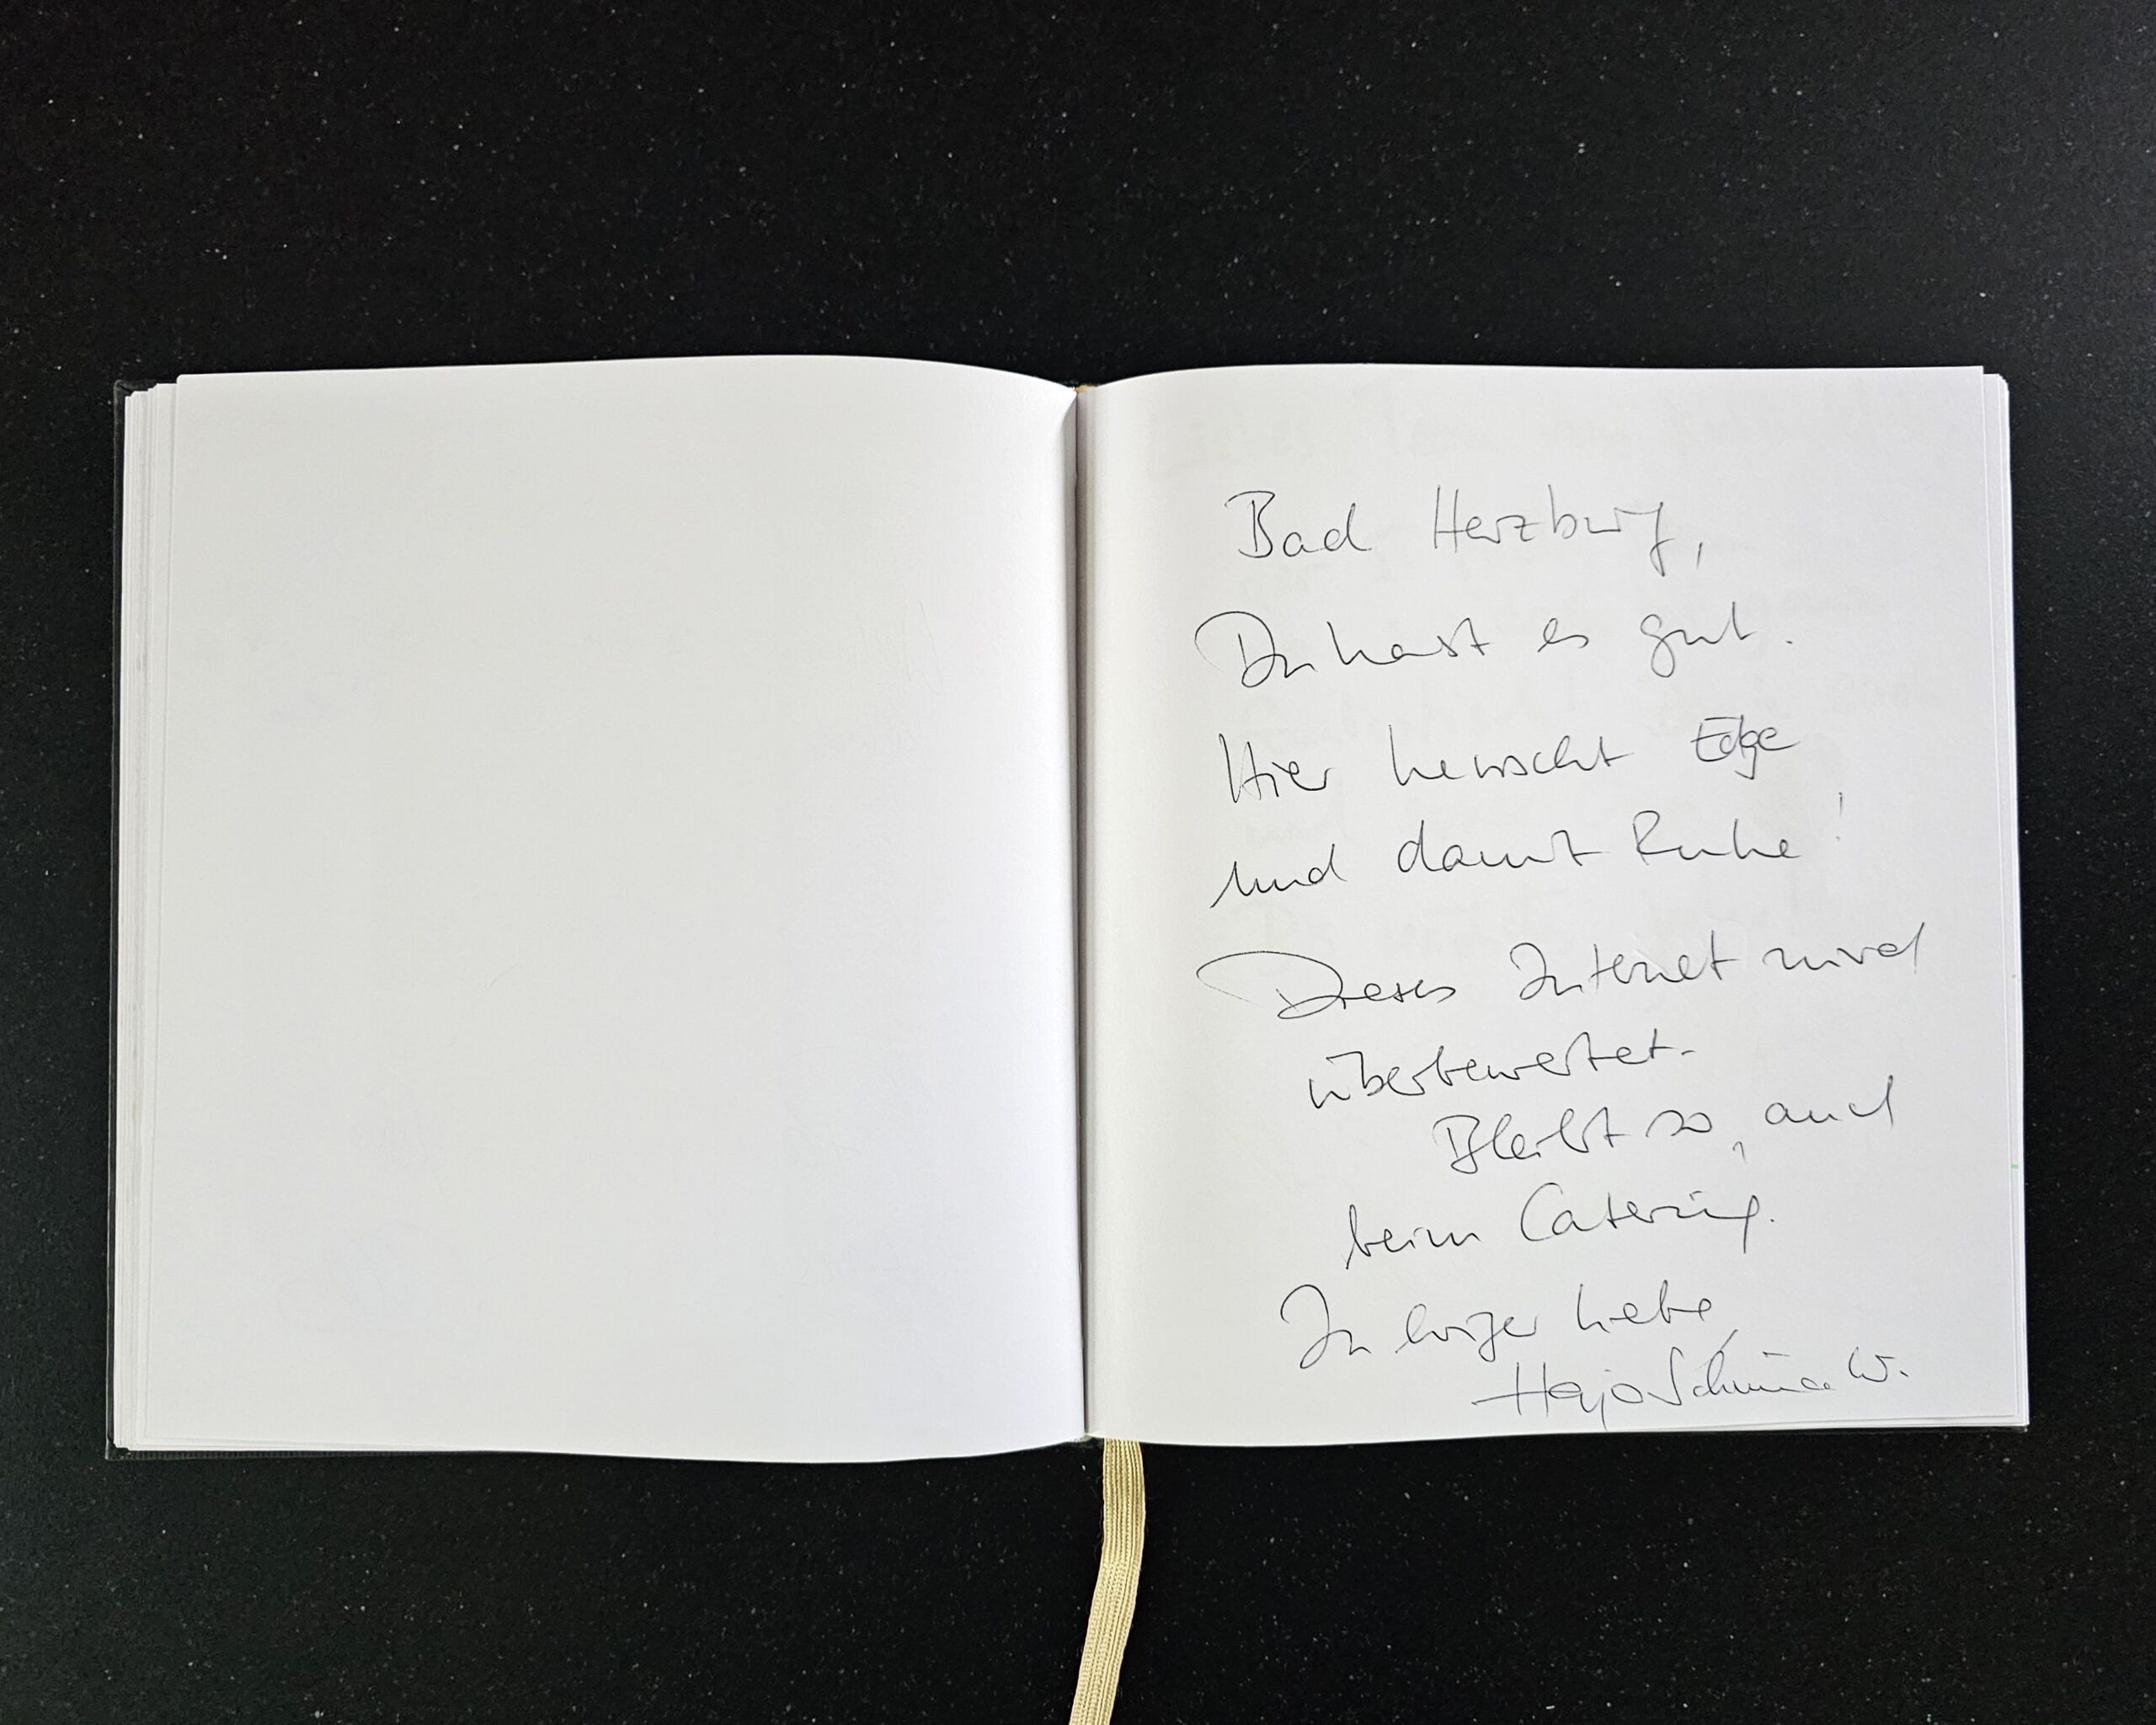 Bad Herzburg,
Du hast es gut.
Hier herrscht Edge
und damit Ruhe!
Dieses Internet wird
überbewertet.
Bleibt so, auch
beim Catering.
In ewiger Liebe,
Hajo Schumacher W.